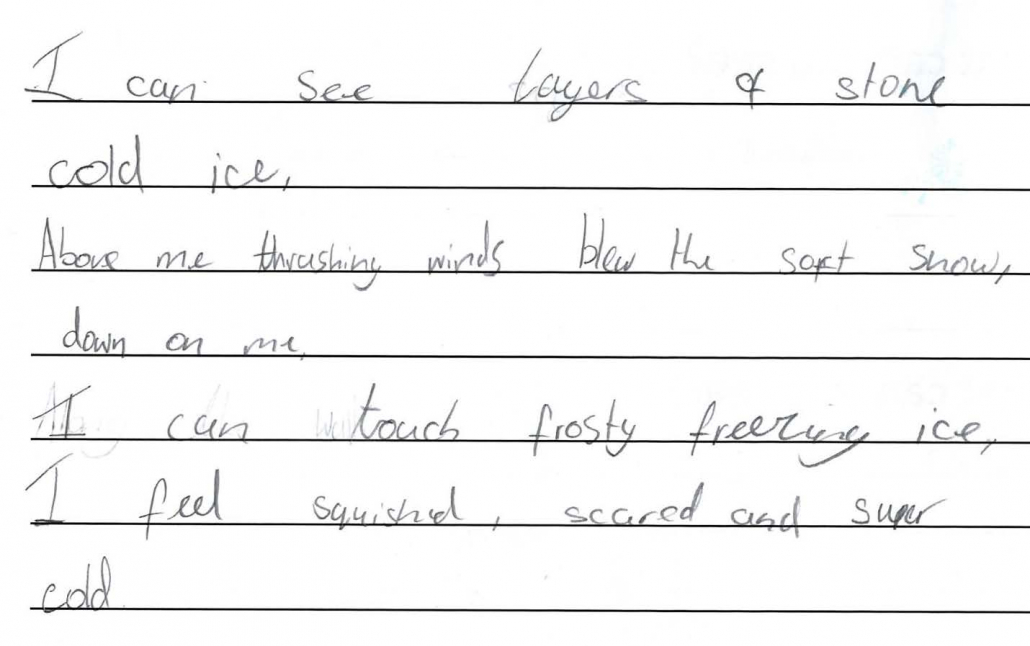 I can see layers of stone
cold ice,
Above me thrashing winds blew the soft snow,
down on me,
I can touch frosty freezing ice,
I feel squished, scared and super
cold